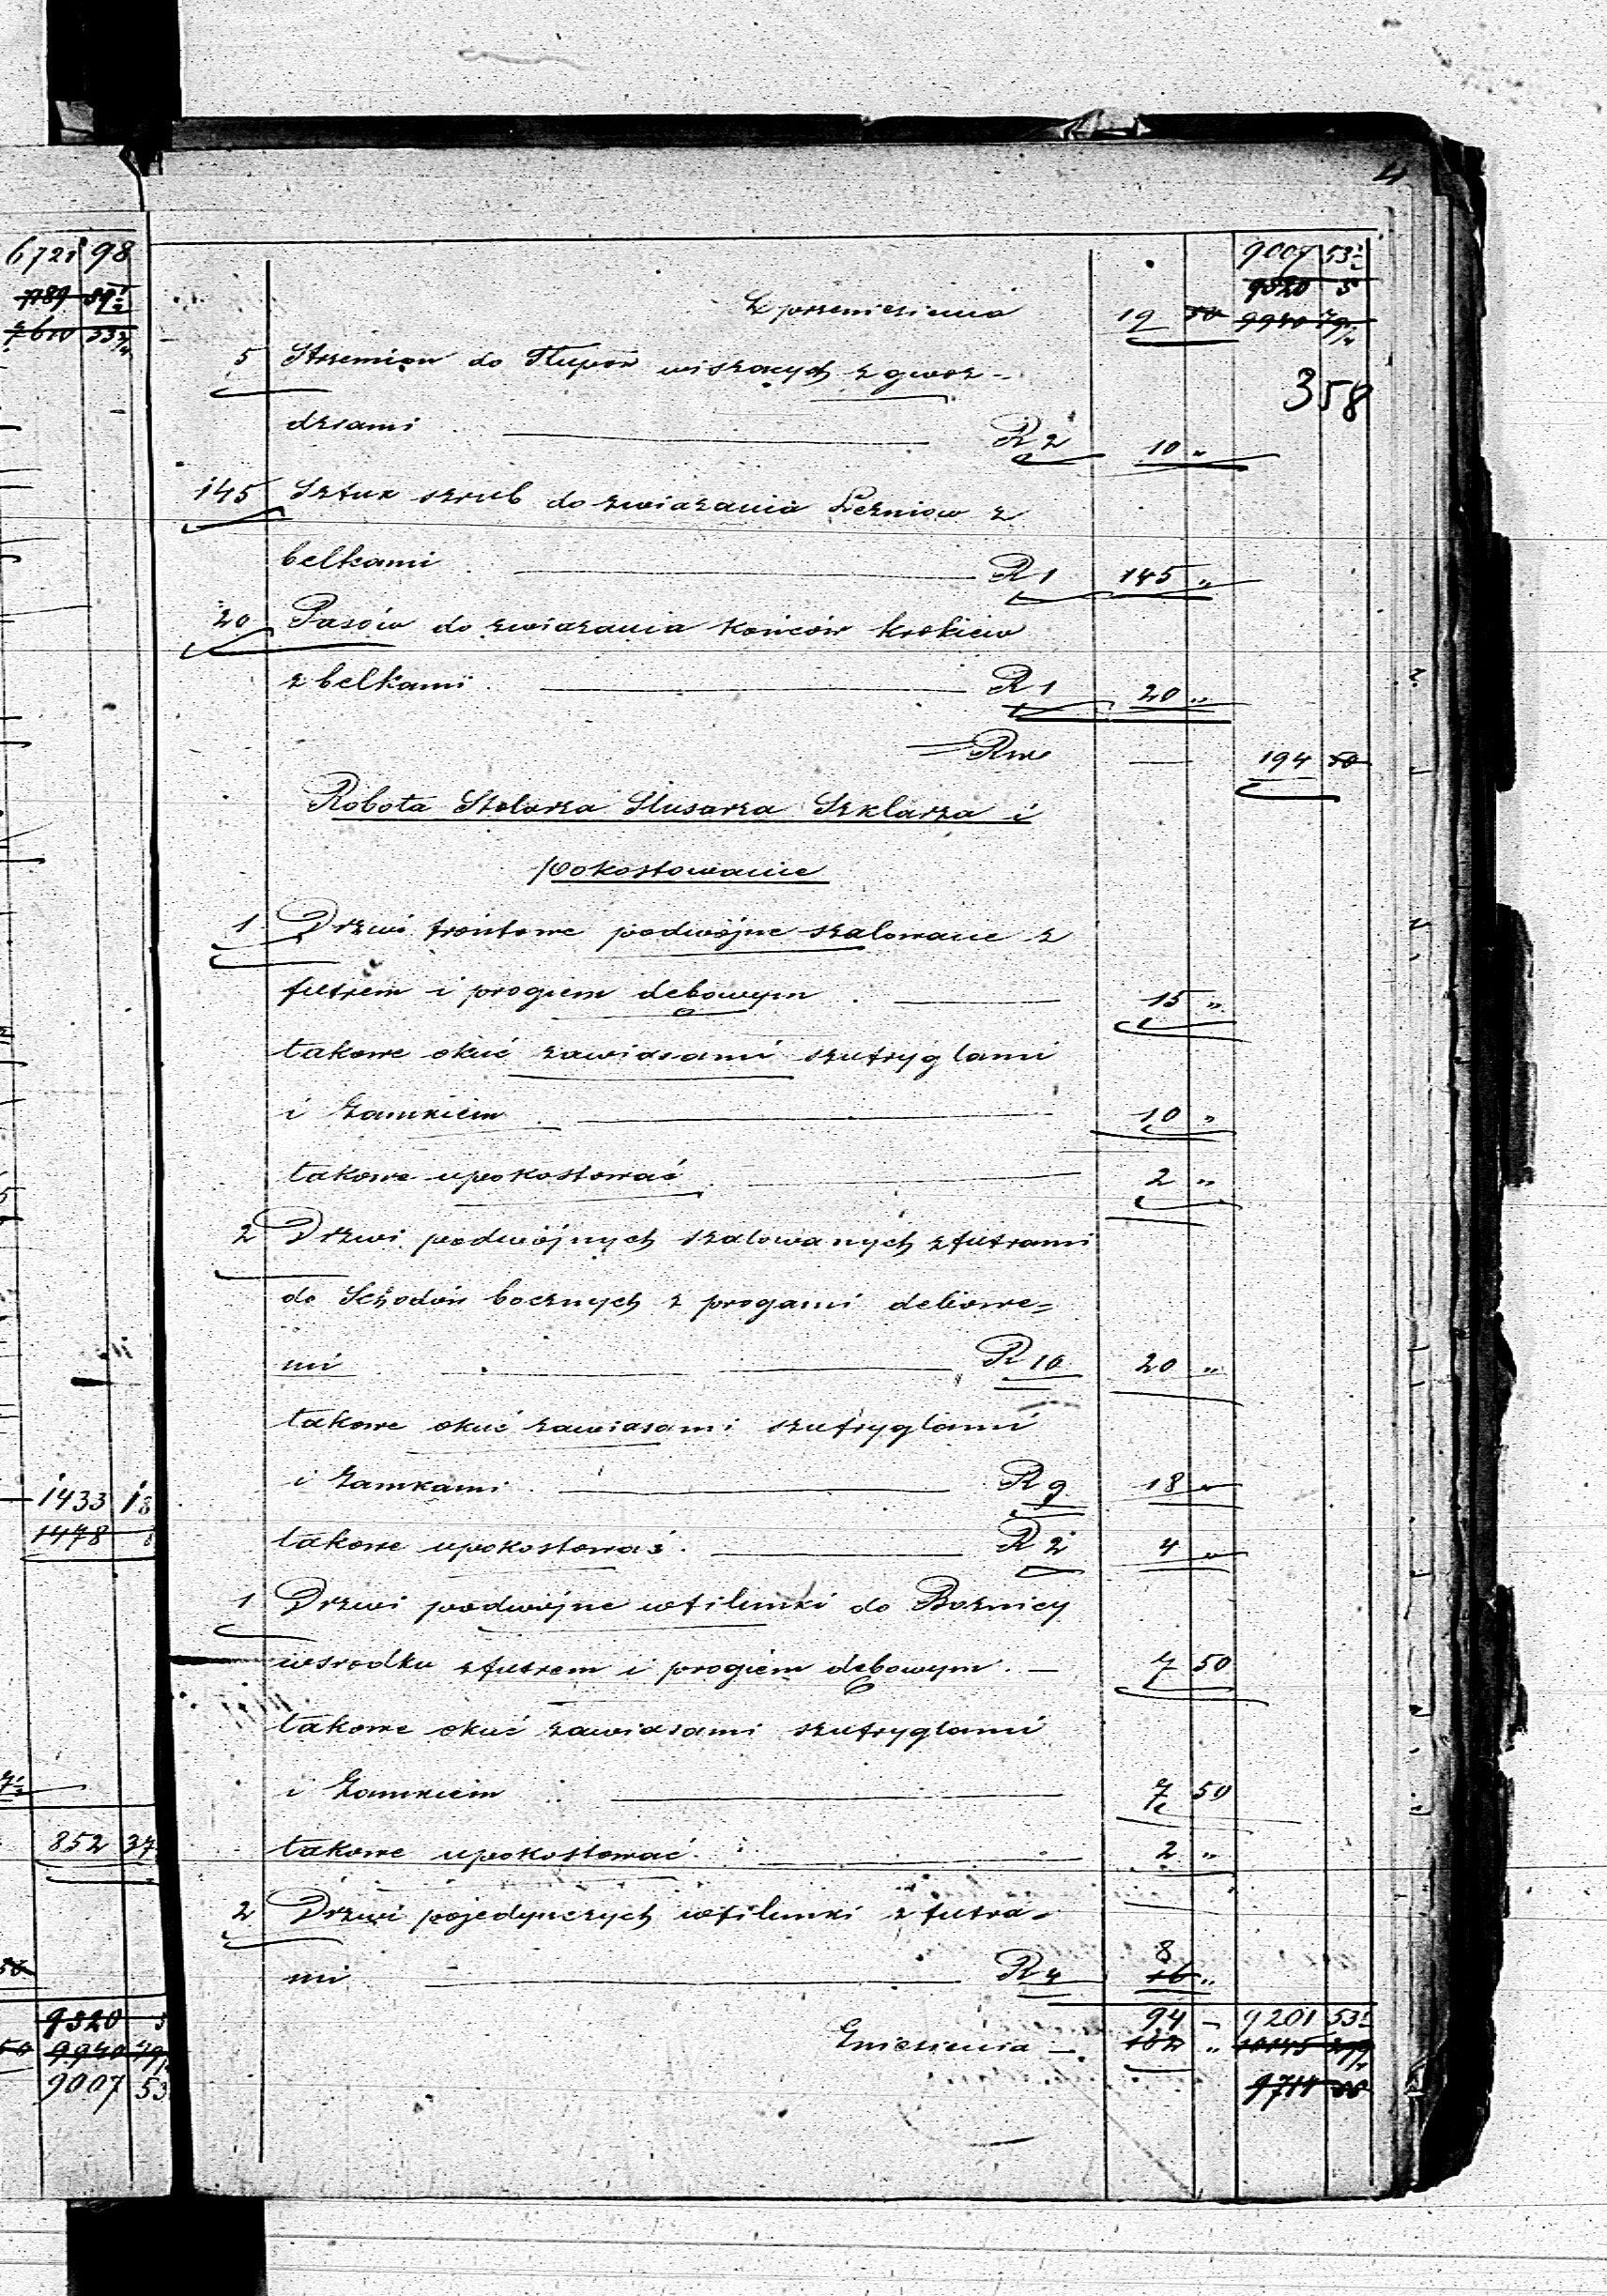 4
6721 98
7189 89½
7610 33
9007 53½
9320 5
Z przeniesienia 19 50 9940 79
358
5 Strzemion do Słupów wiszących z gwoz-
dziami R 2 10 "
145 Sztuk szrub do związania Leżniow z
belkami R 1 145 "
20 Pasów do związania końców krokiew
z belkami R 1 20 "
Rme — 194 50
Robota Stolarza Slusarza Szklarza i
pokostowanie
1 Drzwi frontowe podwójne szalowane z
futrem i progiem dębowym 15 "
takowe okuć zawiasami szufryglami
i Zamkiem 10 "
takowe upokostować 2 "
2 Drzwi podwójnych szalowanych z futrami
do Schodów bocznych z progami debowe=
mi R 10 20 "
takowe okuć zawiasami szufryglami
i Zamkami R 9 18 "
takowe upokostować R 2 4 "
1 Drzwi podwójne w filunki do Boznicy
wsrodku z futrem i progiem dębowym 7 50
takowe okuć zawiasami szufryglami
i Zamkiem 7 50
takowe upokostować 2 "
2 Drzwi pojedynczych w filunki z futra-
8
mi R 4 16 "
94 – 9201 53½
Zniesienia — 102 " 10135 29
9714 55
1433 18
1478 8
852 37
9320 5
50 9940 79
9007 53